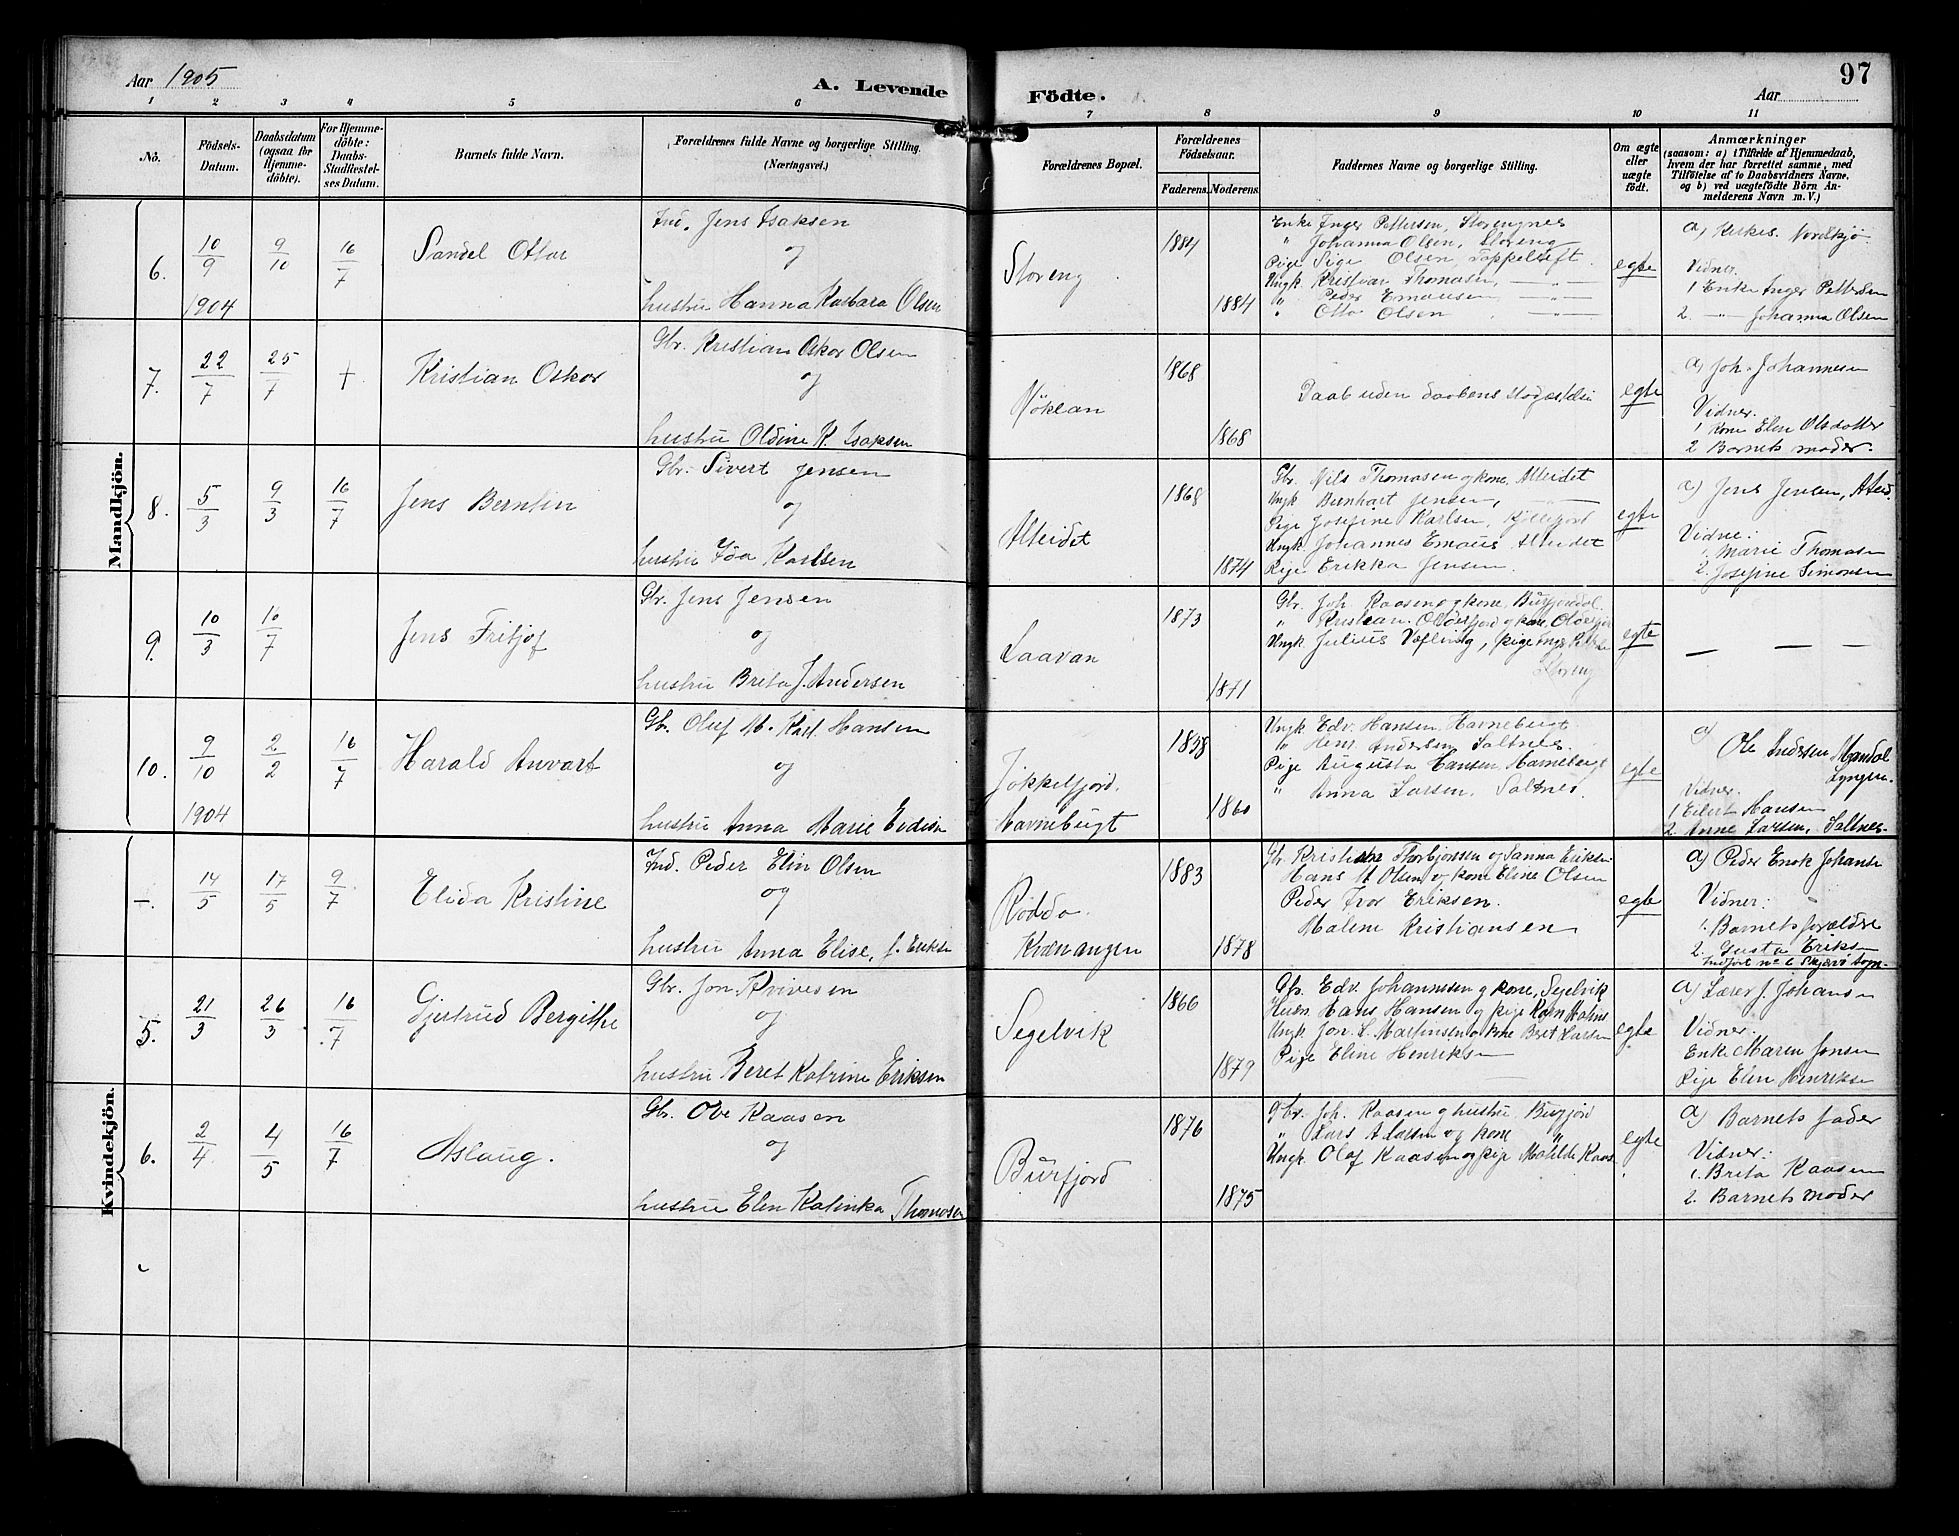 Aar 1905
A. Levende
Födte.
Aar
97
1 2 3 4 5 6 7 8 9 10 11
No.
Födsels-
Datum.
Daabsdatum
(ogsaa for
Hjemme-
döbte).
For Hjemme-
döbte:
Daabs-
Stadfæstel-
ses Datum.
Barnets fulde Navn.
Forældrenes fulde Navne og borgerlige Stilling.
(Næringsvei.)
Forældrenes Bopæl.
Forældrenes
Födselsaar.
Faderens. Moderens.
Faddernes Navne og borgerlige Stilling.
Om ægte
eller
uægte
födt.
Anmærkninger
(saasom: a) i Tilfælde af Hjemmedaab,
hvem der har forrettet samme, med
Tilföielse af to Daabsvidners Navne,
og b) ved uægtefödte Börn An-
melderens Navn m. V.)
Mandkjön.
6.
10/9
1904
9/10
16/7
Sandel Ottar
Ind. Jens Isaksen
og
hustru Hanna Barbara Olsen
Storeng
1884
1884
Enke Inger Pettersen, Storengnes
" Johanna Olsen, Storeng
Pige Sige Olsen,
Ungk. Kristian Thomasen, —"—
" Peder Emausen —"—
" Otto Olsen —"—
egte
a) Kirkes. Nordkjø
Vidner.
1 Enke Inger Pettersen
2. —"— Johanna Olsen
7.
22/7
25/7
+
Kristian Oskar
Gbr. Kristian Oskar Olsen
og
hustru Oldine K. Isaksen
Nöklan
1868
1868
Daab uden daabens Stadfæstelse
egte
a) Joh. Johannesen
Vidner.
1 Kone Elen Olsdatter
2 Barnets moder.
8.
5/3
9/3
16/7
Jens Berntin
Gbr. Sivert Jensen
og
hustru Ida Karlsen
Alteidet
1868
1874
Gbr. Nils Thomasen og kone, Alteidet
Ungk Bernhart Jensen, —
Pige Josefine Karlsen, Kjøllefjord
Ungk. Johannes Emaus Alteidet
Pige Erikka Jensen.
egte
a) Jens Jensen, Alteid.
Vidne:
1. Marie Thomasen
2. Josefine Simonsen
9.
10/3
10/7
Jens Fritjof
Gbr. Jens Jensen
og
hustru Brita J. Andersen
Laavan
1873
1871
Gbr. Joh Kaasen og kone, Burfjorddal.
" Kristian Olderfjord og kone Olderfjord
Ungk Julius, pige Inga
Storeng
egte
— — —
10.
9/10
1904
2/2
16/7
Harald Anvart
Gbr. Oluf M. Karl Hansen
og
hustru Anna Marie
Jøkkelfjord,
Havnebugt
1858
1860
Ungk Edv. Hansen, Havnebugt
" Henr Andersen Saltnes.
Pige Augusta Hansen, Havnebugt
" Anna Larsen, Saltnes.
egte
a) Ole Andersen Mandal
Lyngen.
Vidner.
1 Eilert Hansen
2. Anne Larsen, Saltnes.
Kvindekjön.
—.
14/5
17/5
9/7
Elida Kristine
Ind. Peder Elin Olsen
og
hustru Anna Elise, f. Eriksen
Rødda.
Kvænangen
1883
1878
Gbr Kristian Thorbjørnsen og Sanna Eriksen
Hans M Olsen og kone Eline Olsen
Peder Ivar Eriksen.
Malene Kristiansen
egte
a) Peder Enok Johansen
Vidner:
1. Barnets forældre
2. Gusta Eriksen
Indført no 6 Skjervø Sogn
5.
21/3
26/3
16/7
Gjertrud Bergithe
Gbr. Jon Kvivesen
og
hustru Beret Katrine Eriksen
Segelvik
1866
1879
Gbr. Edv Johannesen og kone, Segelvik
Husm. Hans Hansen og pige Karn Maline
Ungk Jon. L. Martinsen og kone Beret Larsen
Pige Eline Henriksen
egte
a) Lærer J. Johansen
Vidner.
Enke Maren Jensen
Pige Elen Henriksen
6.
2/4
4/5
16/7
Aslaug.
Gbr. Ove Kaasen
og
hustru Elen Katinka Thomasen
Burfjord
1876
1875
Gbr. Joh. Kaasen og hustru Burfjord
" Lars A Larsen og kone "
Ungk. Olaf Kaasen og pige Matilde Kaas
egte
a) Barnets fader
Vidner:
1. Brita Kaasen
2. Barnets moder